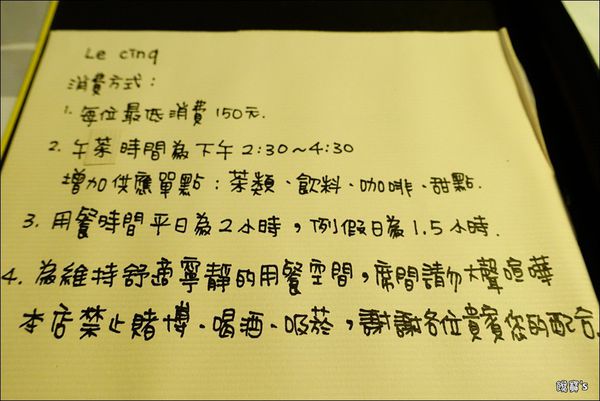 Le cinq
消費方式：
1. 每位最低消費150元.
2. 午茶時間為下午2:30～4:30
增加供應單點：茶類、飲料、咖啡、甜點.
3. 用餐時間平日為2小時，例假日為1.5小時.
4. 為維持舒適寧靜的用餐空間，席間請勿大聲喧嘩
本店禁止賭博、喝酒、吸菸，謝謝各位貴賓您的配合.